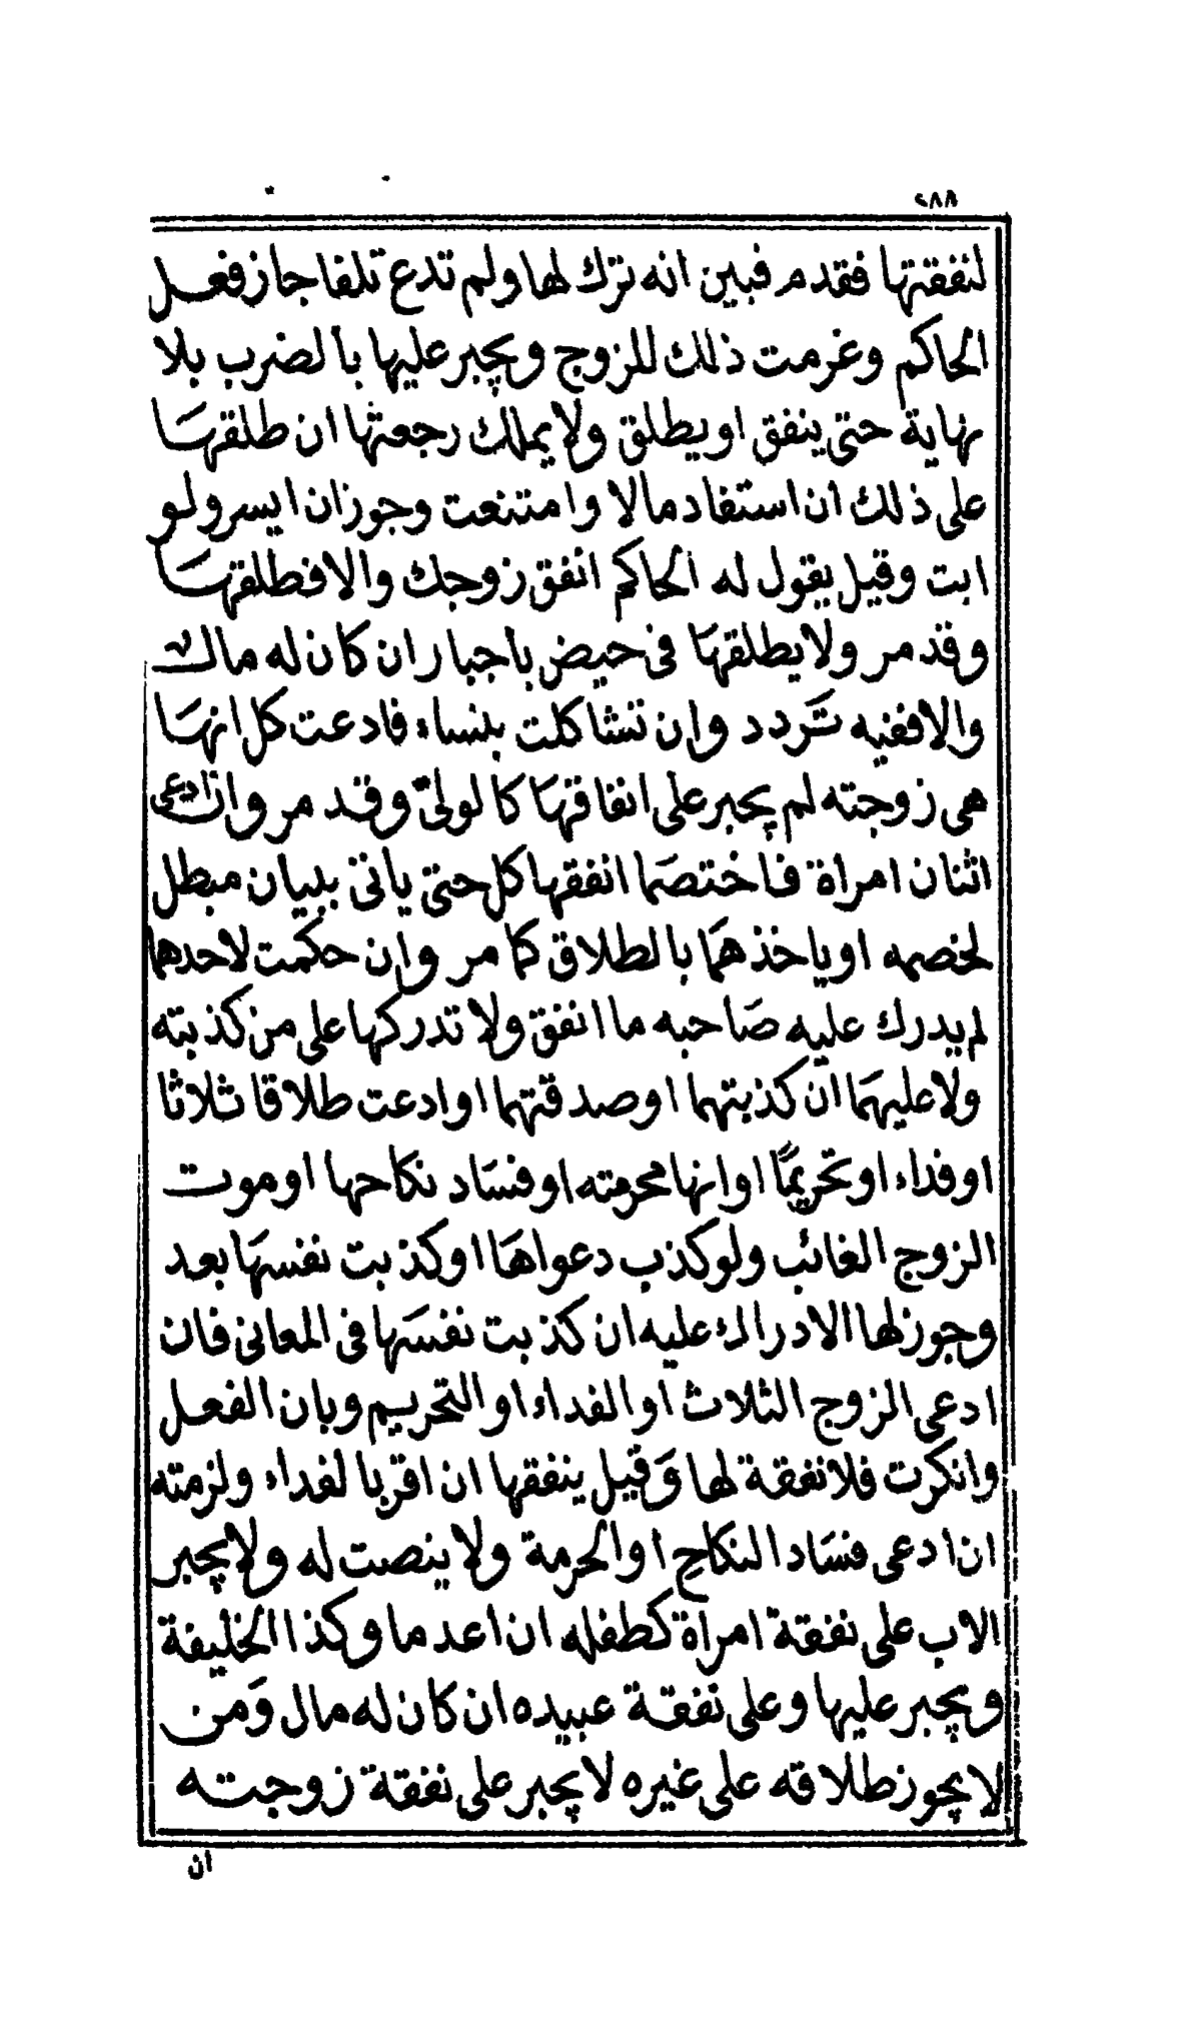 ٢٨٨
لنفقتها فقدم فبين انه ترك لها ولم تدع تلفا جاز فعل
الحاكم وغرمت ذلك للزوج ويجبر عليها بالضرب بلا
نهاية حتى ينفق او يطلق ولا يملك رجعتها ان طلقهَا
على ذلك ان استفاد مالا وامتنعت وجوز ان ايسر ولو
ابت وقيل يقول له الحاكم انفق زوجك والا فطلقهَا
وقد مر ولا يطلقهَا فى حيض باجبار ان كان له مال
والا ففيه تَردد وان تشاكلت بنساء فادعت كل انهَا
هى زوجته لم يجبر على انفاقهَا كالولىّ وقد مر وان ادعى
اثنان امراة فاختصمَا انفقها كل حتى ياتى ببيان مبطل
لخصمه او ياخذهمَا بالطلاق كما مر وان حكمت لاحدهما
لم يدرك عليه صَاحبه ما انفق ولا تدركها على من كذبته
ولا عليهمَا ان كذبتهما او صدقتهما او ادعت طلاقا ثلاثا
او فداء او تحريمًا او انها محرمته او فسَاد نكاحها او موت
الزوج الغائب ولو كذب دعواهَا او كذبت نفسهَا بعد
وجوز لها الادراك عليه ان كذبت نفسَها فى المعانى فان
ادعى الزوج الثلاث او الفداء او التحريم وبان الفعل
وانكرت فلا نفقة لها وَقيل ينفقها ان اقر بالفداء ولزمته
ان ادعى فسَاد النكاح او الحرمة ولا ينصت له ولا يجبر
الاب على نفقة امراة كطفله ان اعدما وكذا الخليفة
ويجبر عليها وعلى نفقة عبيده ان كان له مال وَمن
لا يجوز طلاقه على غيره لا يجبر على نفقة زوجته
ان